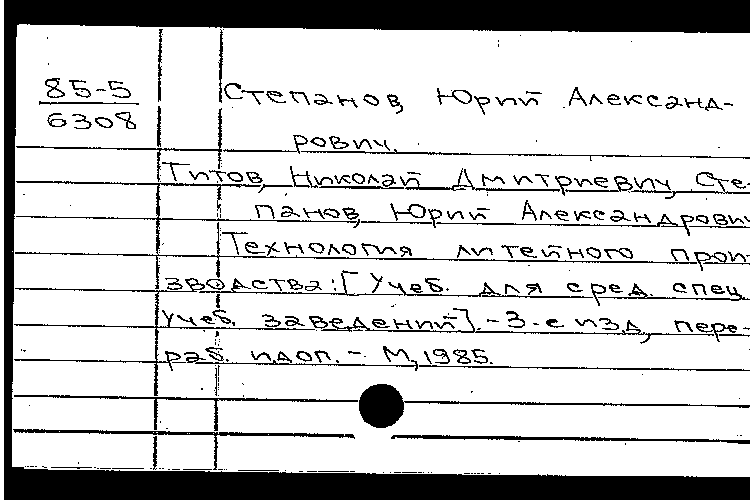 85-5
6308
Степанов, Юрий Александ-
рович.
Титов, Николай Дмитриевич, Сте-
панов, Юрий Александрович
Технология литейного прои-
зводства: [Учеб. для сред. спец.
учеб. заведений]. - 3-е изд., пере-
раб. и доп. - М, 1985.